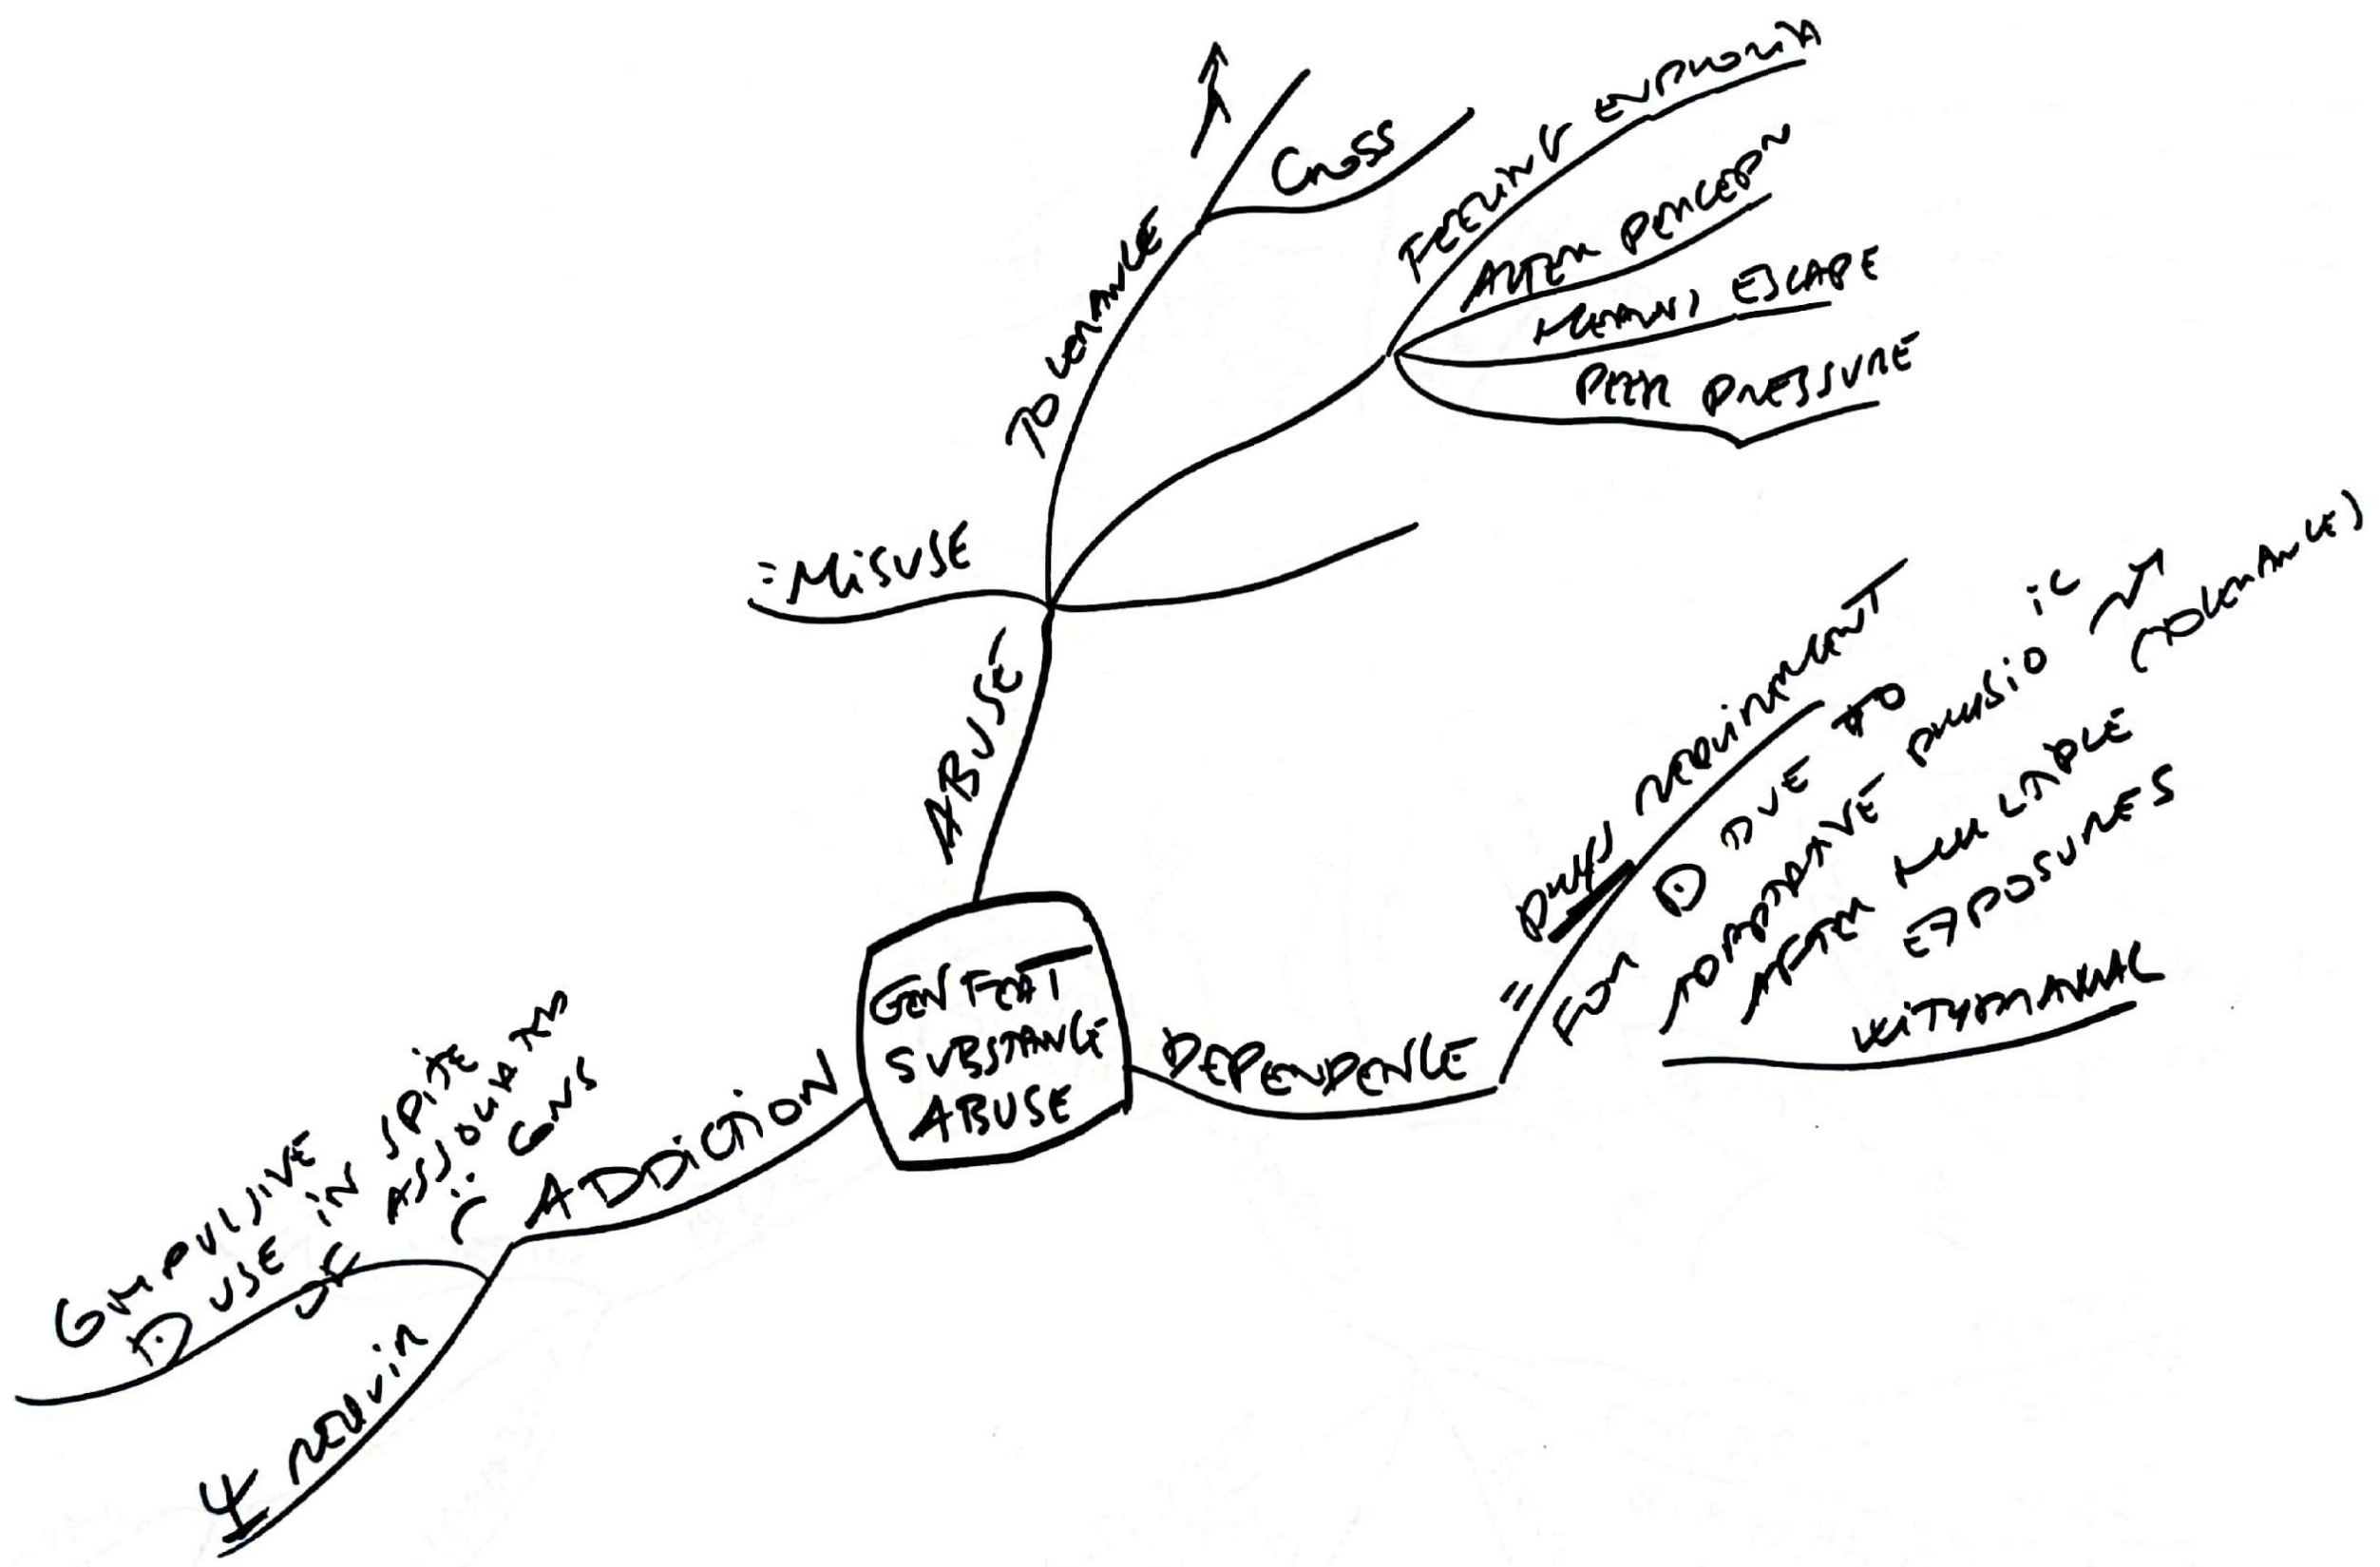 GEN FEAT
SUBSTANCE
ABUSE
ABUSE
= MISUSE
TOLERANCE
↑
CROSS
FEELING EUPHORIA
ALTER PERCEPN
MENTAL ESCAPE
PEER PRESSURE
DEPENDENCE
= PHYS REQUIREMENT
FOR D DUE TO
ADAPTATIVE PHYSIO IC
AFTER MULTIPLE (TOLERANCE)
EXPOSURES
WITHDRAWAL
ADDICTION
COMPULSIVE
D USE IN SPITE
OF ASSOCIATED
CONS
Ψ REQUIR